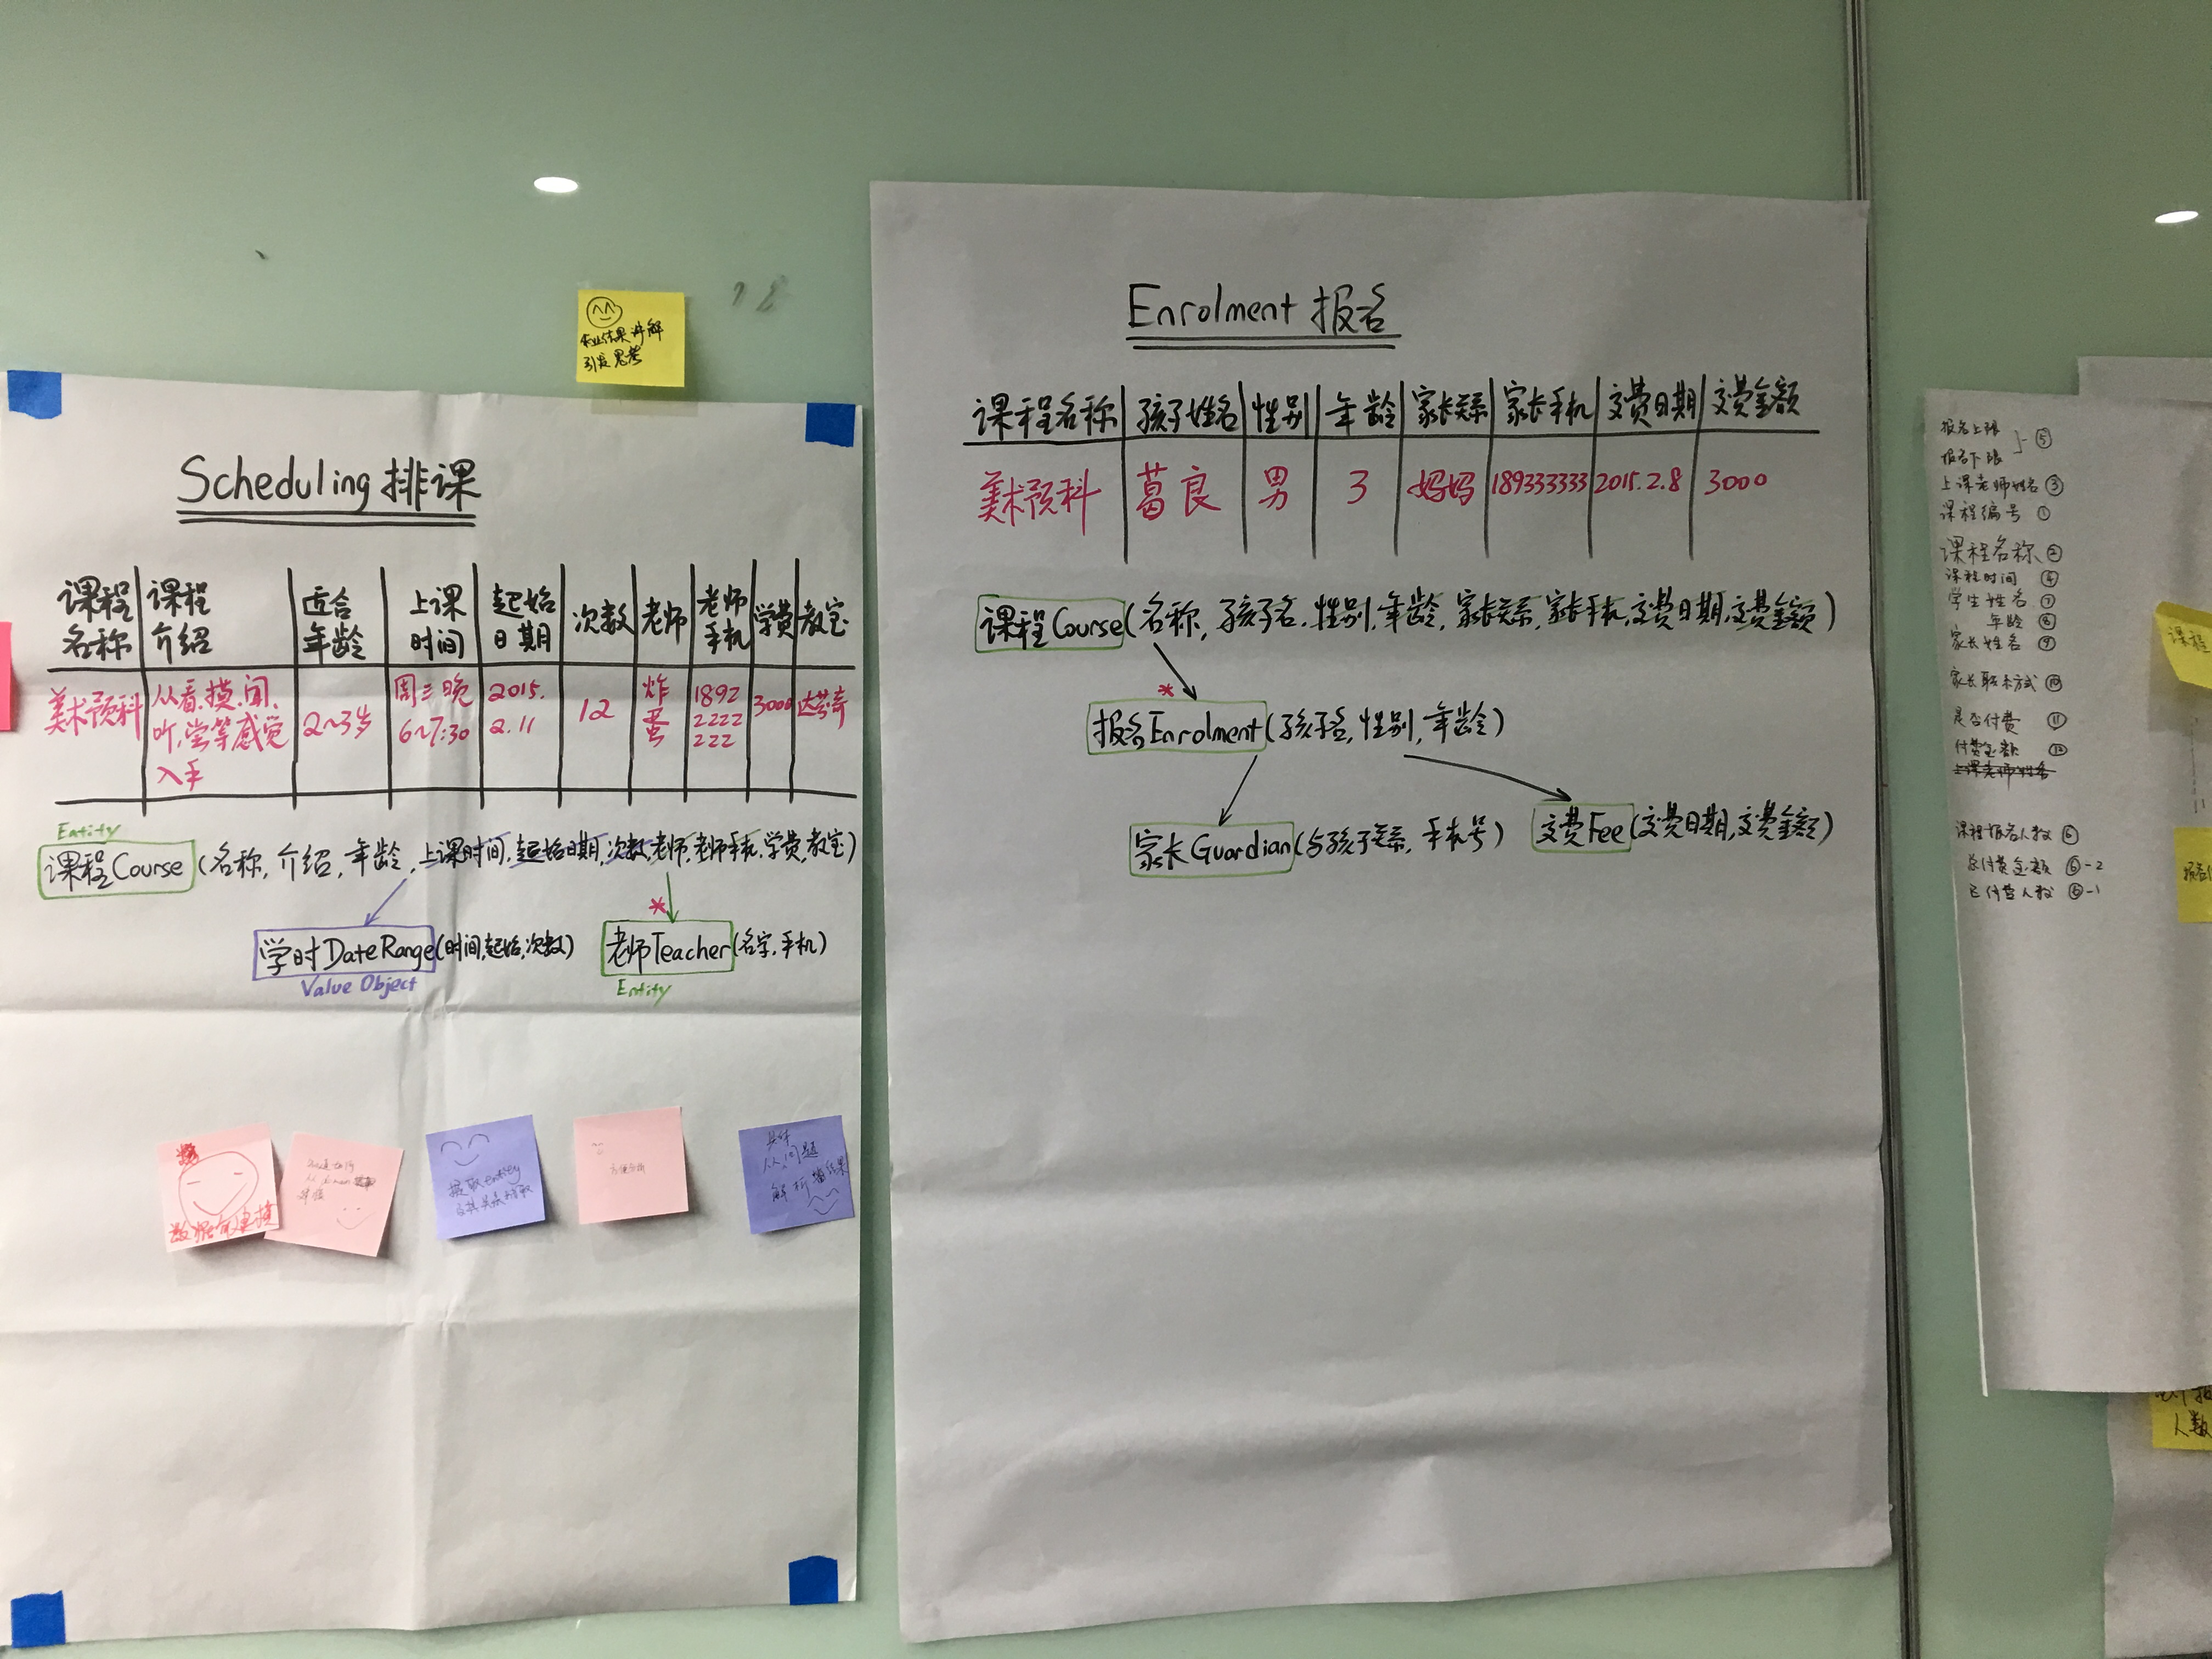 作业结果讲解
引发思考
Scheduling 排课
课程名称 课程介绍 适合年龄 上课时间 起始日期 次数 老师 老师手机 学费 教室
美术预科 从看、摸、闻、听、尝等感觉入手 2~3岁 周三晚 6~7:30 2015.2.11 12 炸蛋 18922222222 3000 达芬奇
Entity
课程Course (名称, 介绍, 年龄, 上课时间, 起始日期, 次数, 老师, 老师手机, 学费, 教室)
*
学时DateRange(时间,起始,次数) 老师Teacher(名字,手机)
Value Object
Entity
提取entity
从问题
解析
Enrolment 报名
课程名称 孩子姓名 性别 年龄 家长关系 家长手机 交费日期 交费金额
美术预科 葛良 男 3 妈妈 189333333 2015.2.8 3000
课程Course(名称, 孩子名, 性别, 年龄, 家长关系, 家长手机, 交费日期, 交费金额)
*
报名Enrolment(孩子名, 性别, 年龄)
家长Guardian(与孩子关系, 手机号) 交费Fee(交费日期, 交费金额)
报名上限
报名下限
⑤
上课老师姓名 ③
课程编号 ①
课程名称 ②
课程时间 ④
学生姓名 ⑦
年龄 ⑧
家长姓名 ⑨
家长联系方式 ⑩
是否付费 ⑪
付费金额 ⑫
上课老师姓名
课程报名人数 ⑥
总付费金额 ⑥-2
已付费人数 ⑥-1
课程
人数